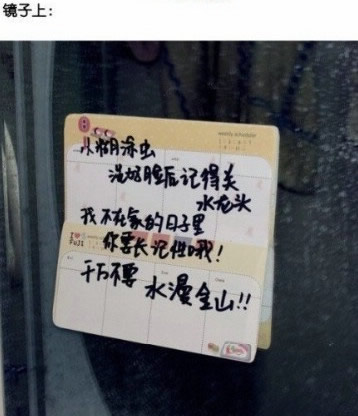 镜子上：
weekly scheduler
小糊涂虫
洗好脸后记得关
水龙头
我不在家的日子里
你要长记性哦！
FUJI
千万不要 水漫金山!!